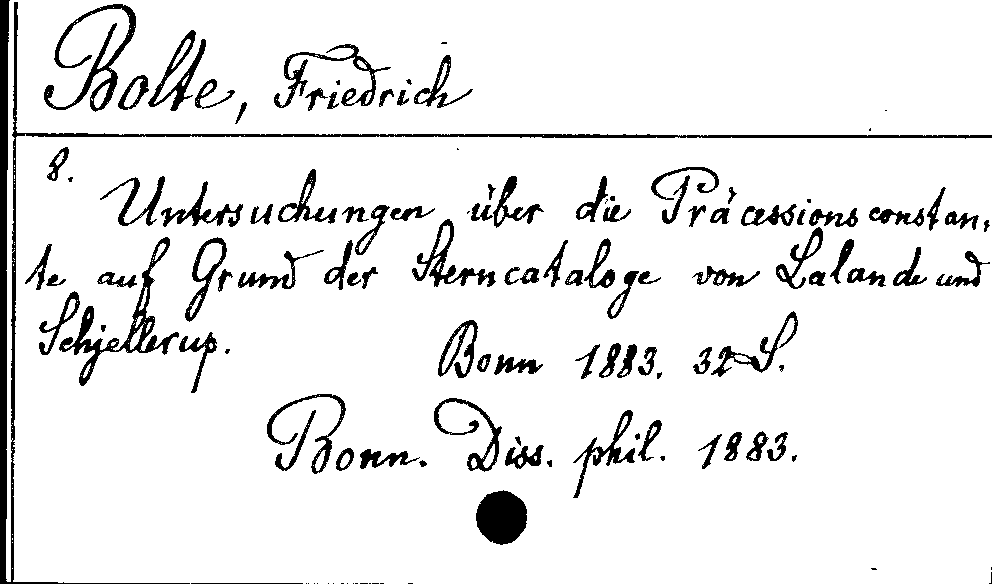 Bolte, Friedrich
8.
Untersuchungen über die Präcessionsconstan-
te auf Grund der Sterncataloge von Lalande und
Schjellerup.
Bonn 1883. 32 S.
Bonn. Diss. phil. 1883.